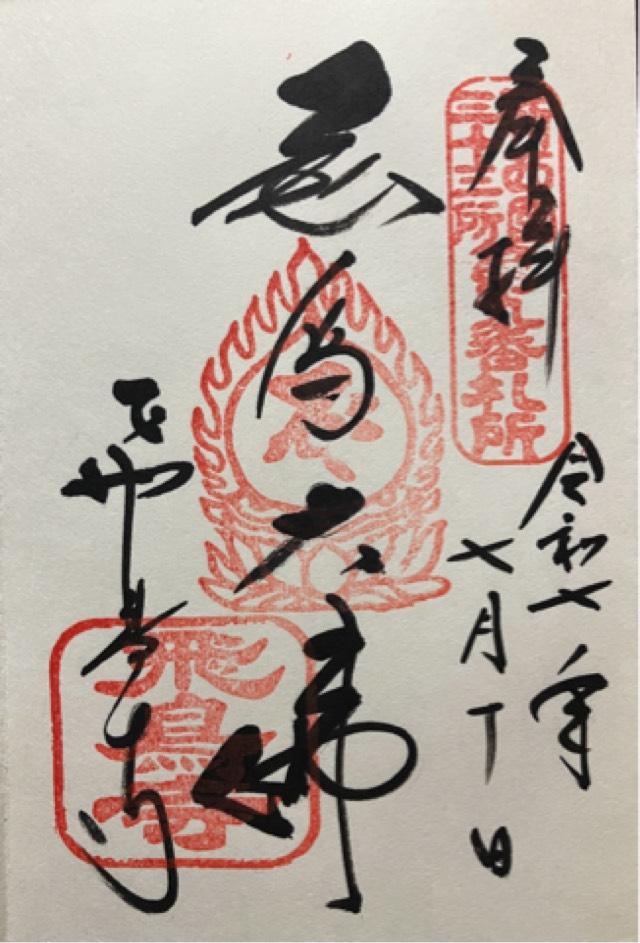 奉拝
新西国
三十三所
第九番札所
令和七年
七月 日
飛鳥大佛
寺
飛鳥寺